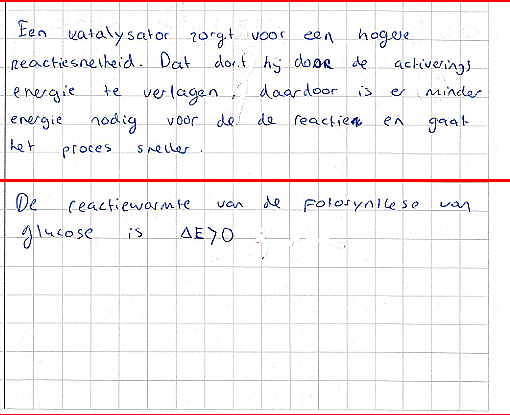 Een katalysator zorgt voor een hogere
reactiesnelheid. Dat doet hij door de activerings
energie te verlagen, daardoor is er minder
energie nodig voor de de reactie en gaat
het proces sneller.
De reactiewarmte van de Fotosynthese van
glucose is ΔE>0